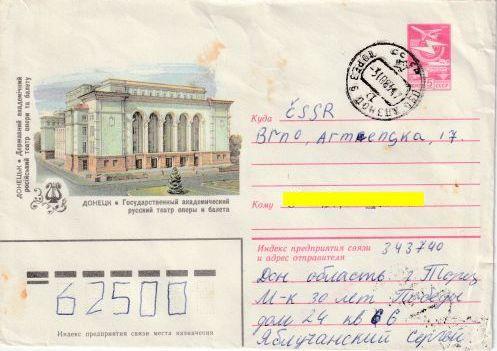 ДОНЕЦЬК • Державний академічний
російський театр опери та балету
ДОНЕЦК • Государственный академический
русский театр оперы и балета
5
СССР
ТОРЕЗ 9
Куда ČSSR
Brno,
17
Кому
Индекс предприятия связи
и адрес отправителя
343740
Дон область г Торез
М-к 30 лет Победы
дом 24 кв 66
Яблучанский Сергей
62500
Индекс предприятия связи места назначения